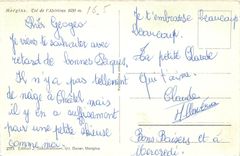 Morgins. Col de l'Abreuveau 1250 m.
16.5
Cher Georges
Je viens te souhaiter avec
retard de bonnes Pâques.
Il n'y a pas tellement
de neige à Châtel mais
il y en a suffisamment
pour une petite
comme moi
Je t'embrasse beaucoup
beaucoup.
La petite Claude
qui t'aime.
Claude
Bons Baisers et à
Mercredi.